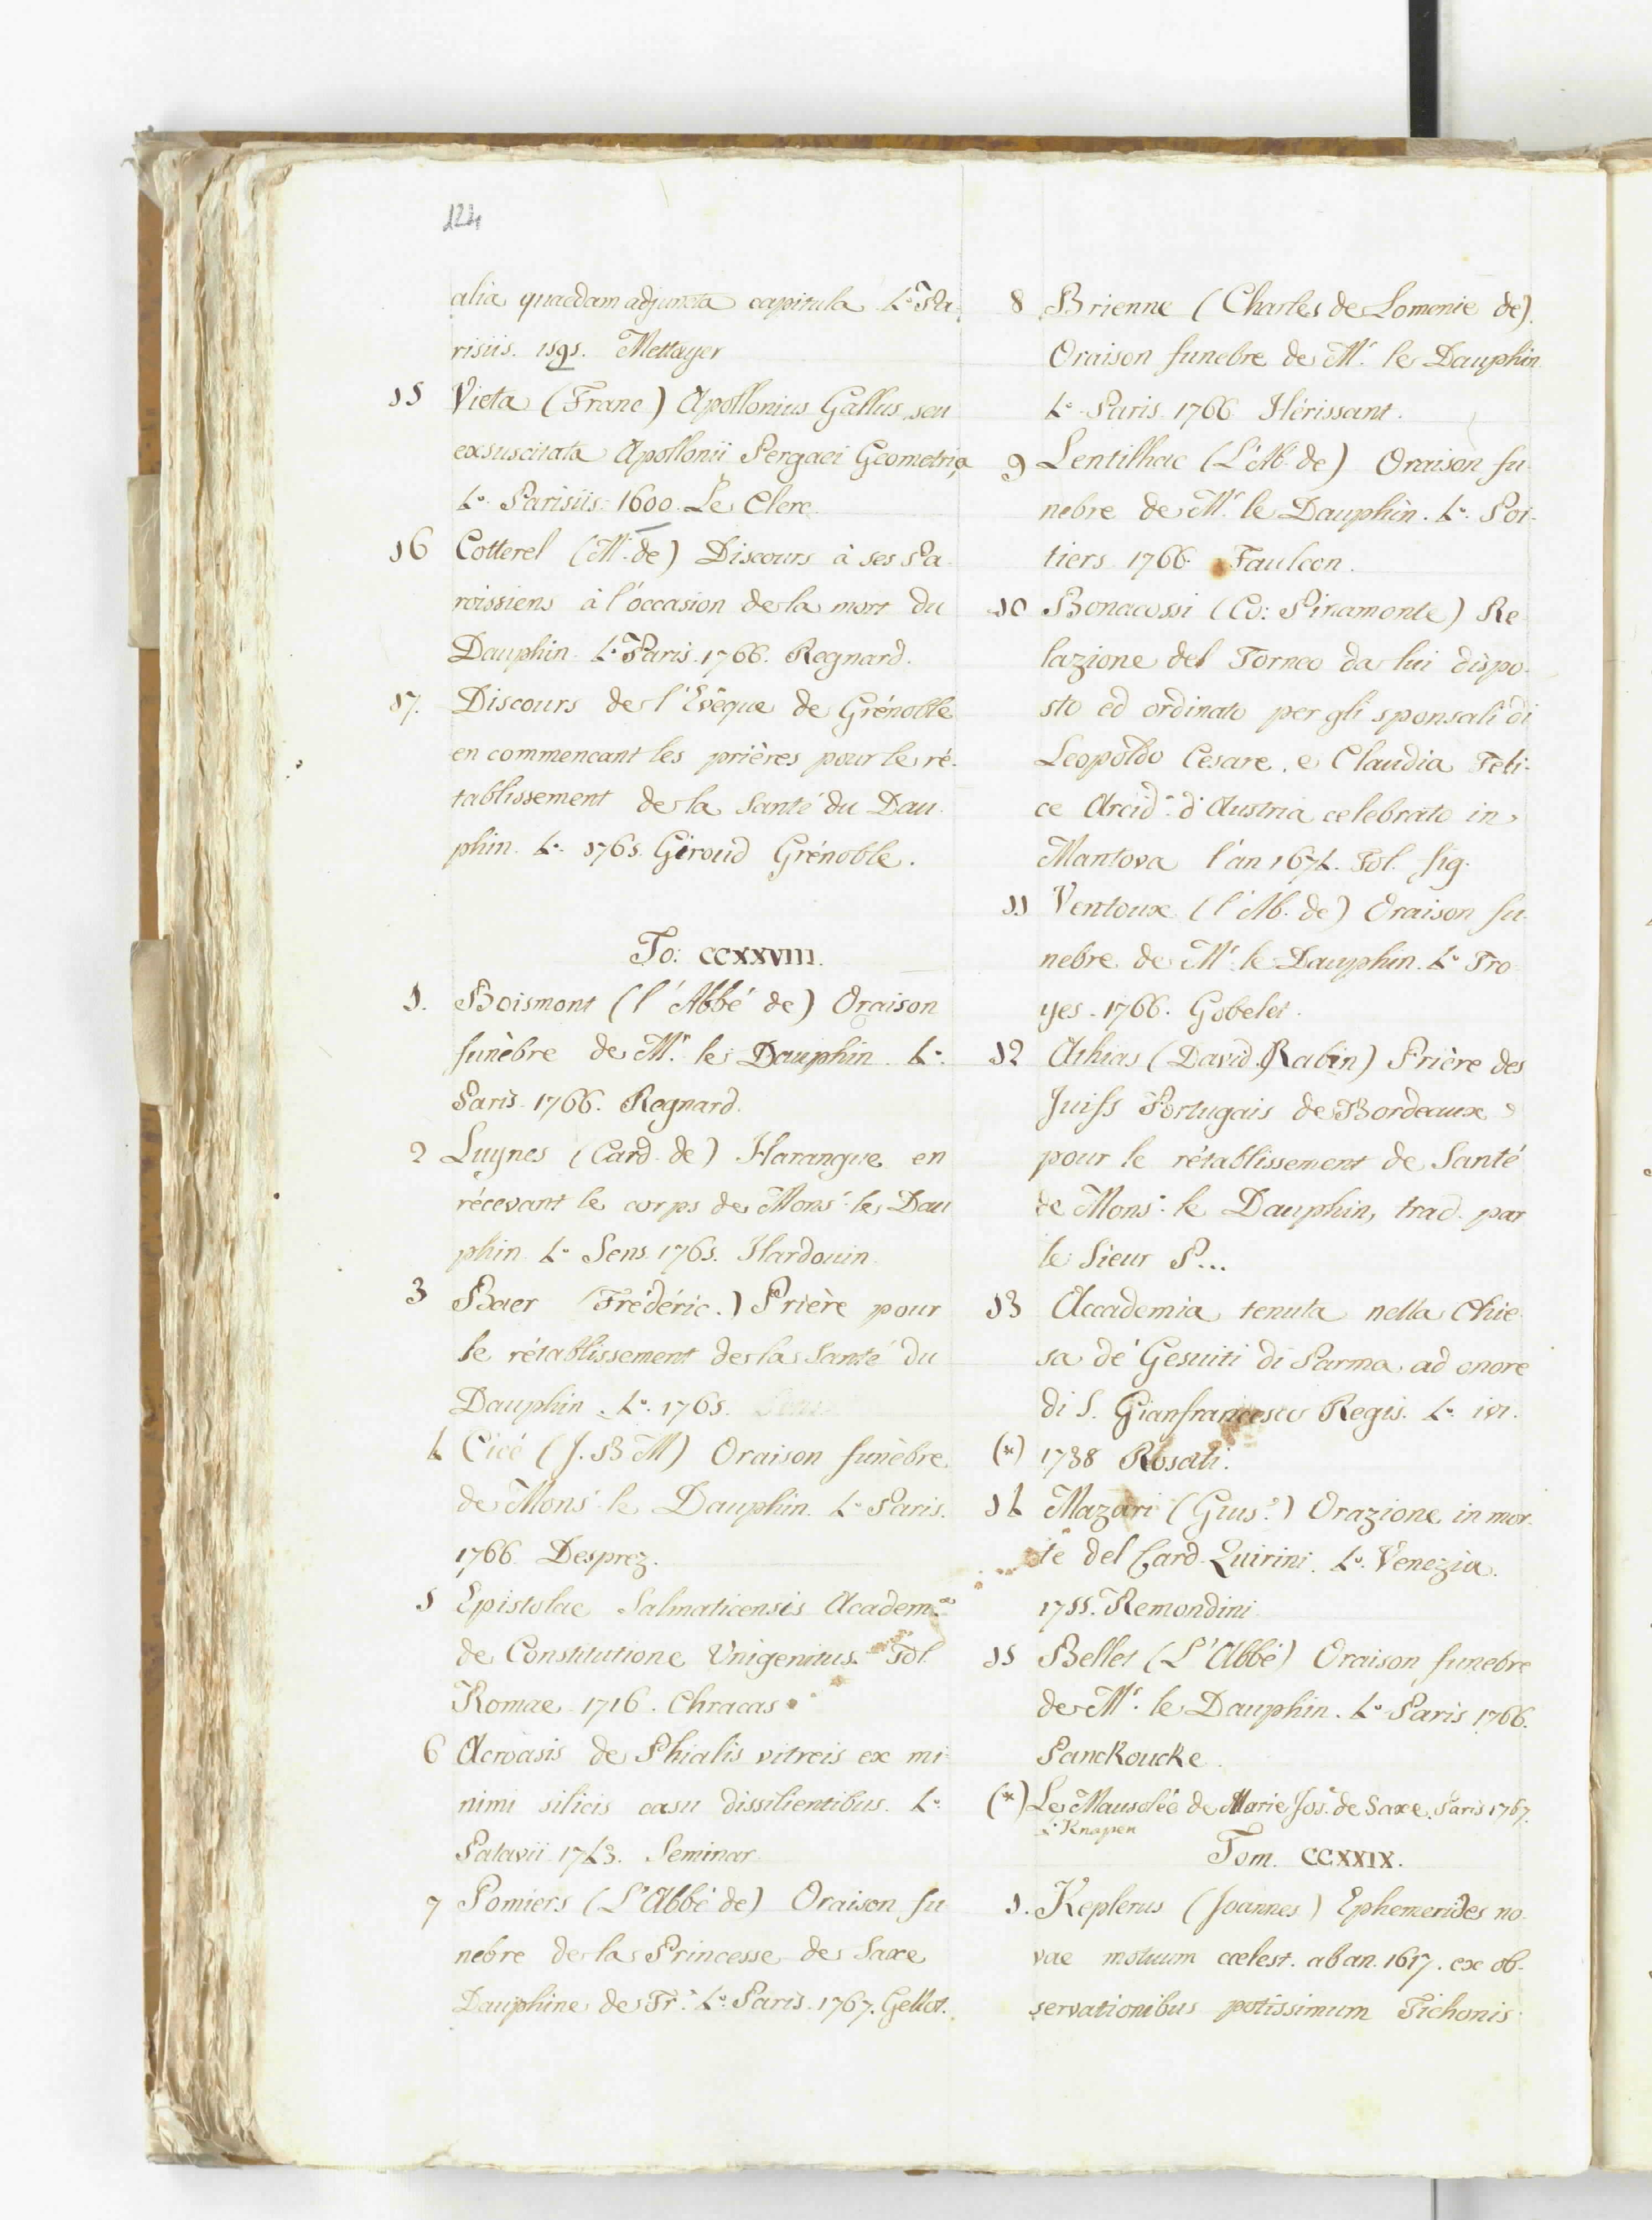 124
alia quaedam adjuncta capitula 4.º Pa-
risiis. 1595. Mettayer
15 Vieta (Franc.) Apollonius Gallus seu
exsuscitata Apollonii Pergaei Geometria
4.º Parisiis. 1600. Le Clerc.
16 Cotterel (M.r de) Discours à ses Pa-
roissiens à l'occasion de la mort du
Dauphin. 4.º Paris. 1766. Regnard.
17. Discours de l'Evêque de Grénoble
en commencant les prières pour le ré-
tablissement de la Santé du Dau-
phin. 4.º 1765. Giroud Grénoble.
To: CCXXVIII.
1. Boismont (l'Abbé de) Oraison
funèbre de M.r le Dauphin. 4.º
Paris. 1766. Regnard.
2 Luynes (Card. de) Harangue en
récevant le corps de Mons.r le Dau
phin. 4.º Sens. 1765. Hardouin.
3 Baer (Frédéric.) Prière pour
le rétablissement de la Santé du
Dauphin. 4.º 1765.
4 Cicé (J. B. M) Oraison funèbre
de Mons.r le Dauphin. 4.º Paris.
1766. Desprez.
5 Epistolae Salmaticensis Academ.ae
de Constitutione Unigenitus. Fol.
Romae. 1716. Chracas.
6 Acroasis de Phialis vitreis ex mi-
nimi silicis casu dissilientibus. 4.º
Patavii. 1743. Seminar.
7 Pomiers (L'Abbé de) Oraison fu
nebre de la Princesse de Saxe
Dauphine de Fr.e 4.º Paris. 1767. Gellot.
8 Brienne (Charles de Lomenie de).
Oraison funebre de M.r le Dauphin.
4.º Paris. 1766. Hérissant.
9 Lentilhac (L'Ab. de) Oraison fu-
nebre de M.r le Dauphin. 4.º Poi-
tiers. 1766. Faulcon.
10 Bonacossi (Co: Pinamonte) Re
lazione del Torneo da lui dispo-
sto ed ordinato per gli sponsali di
Leopoldo Cesare, e Claudia Feli-
ce Arcid.a d'Austria celebrato in
Mantova l'an 1674. Fol. fig.
11 Ventoux (l'Ab. de) Oraison fu-
nebre de M.r le Dauphin. 4.º Tro
yes. 1766. Gobelet.
12 Athias (David Rabin) Prière des
Juifs Portugais de Bordeaux
pour le rétablissement de Santé
de Mons.r le Dauphin, trad. par
le Sieur P...
13 Accademia tenuta nella Chie-
sa de' Gesuiti di Parma ad onore
di S. Gianfrancesco Regis. 4.º ivi.
(*) 1738 Rosati.
14 Mazari (Gius.e) Orazione in mor-
te del Card. Quirini. 4.º Venezia.
1755. Remondini
15 Bellet (L'Abbé) Oraison funebre
de M.r le Dauphin. 4.º Paris 1766.
Panckoucke.
(*) Le Mausolée de Marie Jos. de Saxe. Paris 1767.
4.º Knapen
Tom. CCXXIX.
1. Keplerus (Joannes) Ephemerides no-
vae motuum coelest. ab an. 1617. ex ob-
servationibus potissimum Tichonis